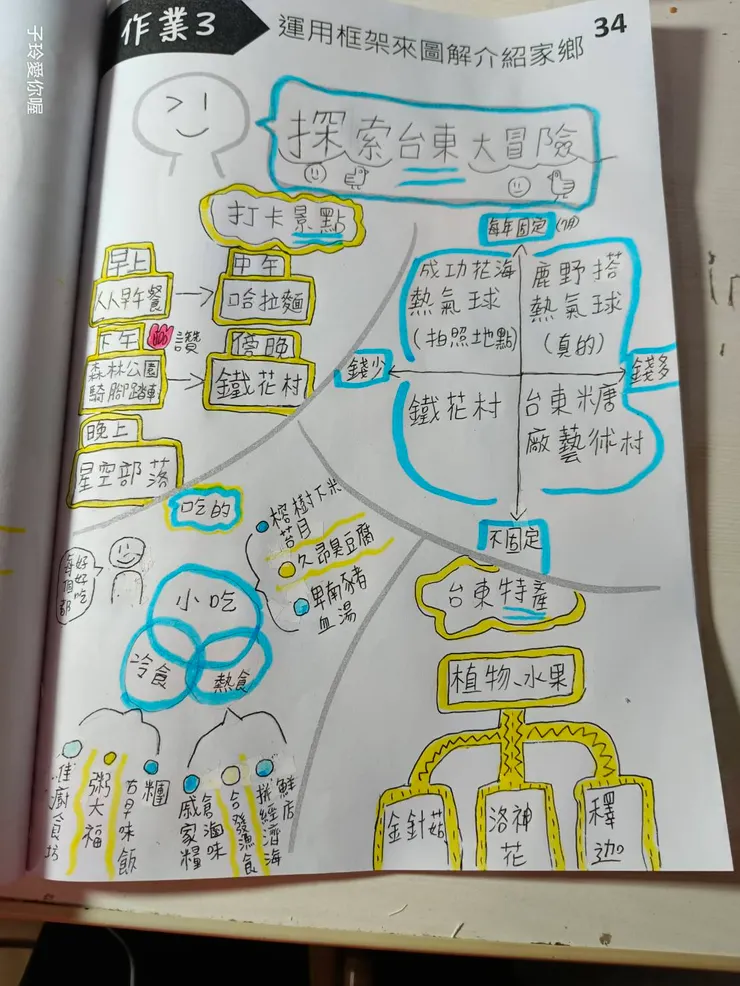 子玲愛你喔
作業3
運用框架來圖解介紹家鄉
34
探索台東大冒險
打卡景點
早上
从从早午餐
中午
哈拉麵
下午
讚
森林公園
騎腳踏車
傍晚
鐵花村
晚上
星空部落
每年固定
成功花海
熱氣球
(拍照地點)
鹿野搭
熱氣球
(真的)
錢少
錢多
鐵花村
台東糖
廠藝術村
不固定
吃的
每個都
好好吃
小吃
冷食
熱食
榕樹下米
苔目
久昂臭豆腐
卑南豬
血湯
佳廚食坊
粥大福
古早味飯
糰
戚家糧
倉滷味
台發漁食
拼經濟海
鮮店
台東特產
植物、水果
金針菇
洛神
花
釋
迦